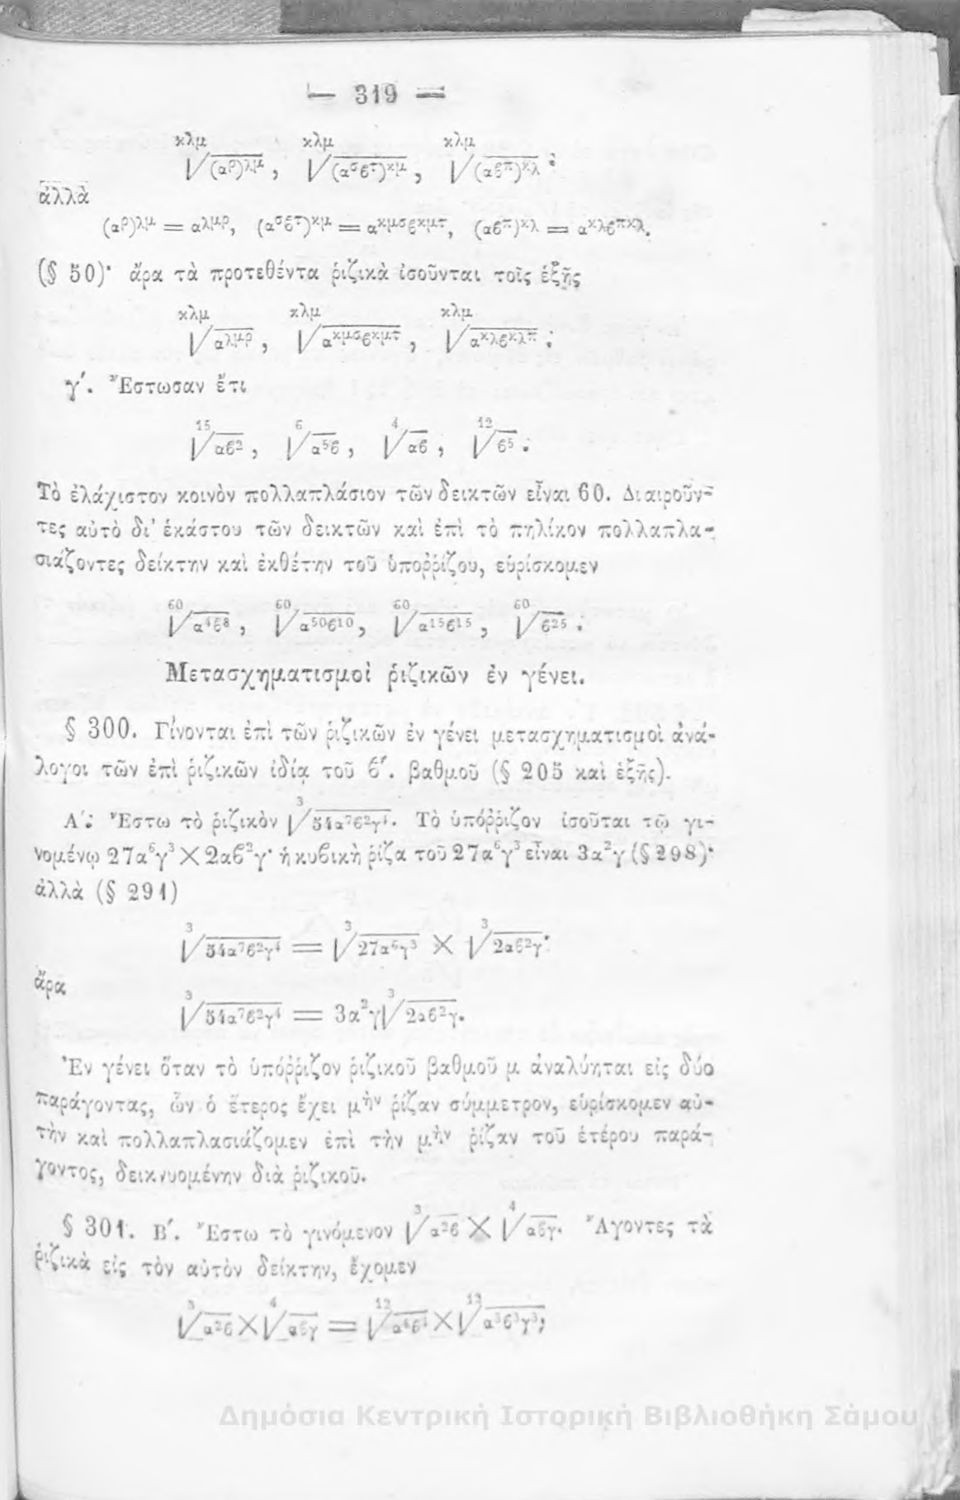 — 319 —
κλμ√(αᵖ)^λμ, κλμ√(α^σϐ^τ)^κμ, κλμ√(αϐ^π)^κλ ·
ἀλλὰ
(α^ρ)^λμ = α^λμρ, (α^σϐ^τ)^κμ = α^κμσϐ^κμτ, (αϐ^π)^κλ = α^κλϐ^πκλ.
(§ 50)· ἄρα τὰ προτεθέντα ῥιζικὰ ἰσοῦνται τοῖς ἑξῆς
κλμ√α^λμρ, κλμ√α^κμσϐ^κμτ, κλμ√α^κλϐ^κλπ :
γ΄. Ἔστωσαν ἔτι
15√αϐ², 6√α⁵ϐ, 4√αϐ, 12√ϐ⁵.
Τὸ ἐλάχιστον κοινὸν πολλαπλάσιον τῶν δεικτῶν εἶναι 60. Διαιροῦν-
τες αὐτὸ δι' ἑκάστου τῶν δεικτῶν καὶ ἐπὶ τὸ πηλίκον πολλαπλα-
σιάζοντες δείκτην καὶ ἐκθέτην τοῦ ὑποῤῥίζου, εὑρίσκομεν
60√α⁴ϐ⁸, 60√α⁵⁰ϐ¹⁰, 60√α¹⁵ϐ¹⁵, 60√ϐ²⁵.
Μετασχηματισμοὶ ῥιζικῶν ἐν γένει.
§ 300. Γίνονται ἐπὶ τῶν ῥιζικῶν ἐν γένει μετασχηματισμοὶ ἀνά-
λογοι τῶν ἐπὶ ῥιζικῶν ἰδίᾳ τοῦ ϐ΄. βαθμοῦ (§ 205 καὶ ἑξῆς).
Α΄. Ἔστω τὸ ῥιζικὸν 3√54α⁷ϐ²γ⁴. Τὸ ὑπόῤῥιζον ἰσοῦται τῷ γι-
νομένῳ 27α⁶γ³ Χ 2αϐ²γ· ἡ κυϐικὴ ῥίζα τοῦ 27α⁶γ³ εἶναι 3α²γ (§ 298)·
ἀλλὰ (§ 291)
3√54α⁷ϐ²γ⁴ = 3√27α⁶γ³ Χ 3√2αϐ²γ·
ἄρα
3√54α⁷ϐ²γ⁴ = 3α²γ 3√2αϐ²γ.
Ἐν γένει ὅταν τὸ ὑπόῤῥιζον ῥιζικοῦ βαθμοῦ μ ἀναλύηται εἰς δύο
παράγοντας, ὧν ὁ ἕτερος ἔχει μ^ὴν ῥίζαν σύμμετρον, εὑρίσκομεν αὐ-
τὴν καὶ πολλαπλασιάζομεν ἐπὶ τὴν μ^ὴν ῥίζαν τοῦ ἑτέρου παρά-
γοντος, δεικνυομένην διὰ ῥιζικοῦ.
§ 301. Β΄. Ἔστω τὸ γινόμενον 3√α²ϐ Χ 4√αϐγ. Ἄγοντες τὰ
ῥιζικὰ εἰς τὸν αὐτὸν δείκτην, ἔχομεν
3√α²ϐ Χ 4√αϐγ = 12√α⁸ϐ⁴ Χ 12√α³ϐ³γ³,
Δημόσια Κεντρική Ιστορική Βιβλιοθήκη Σάμου